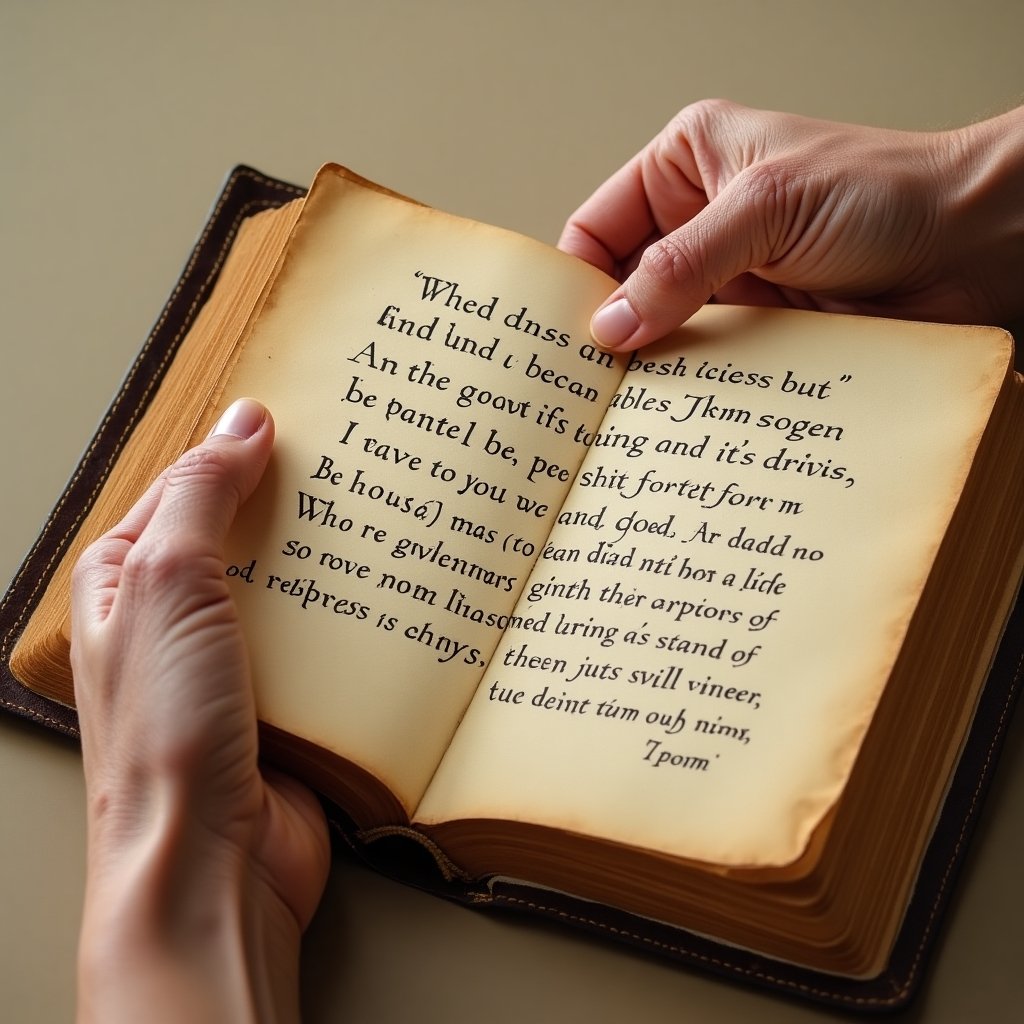 "Whed dnss an besh iciess but"
find lund i becan ables Jkm sogen
An the goovt ifs tuing and it's drivis,
be pantel be, pee shit fortet forr m
I eave to you we and, goed, Ar dadd no
Be housa) mas (to ean diad nti hor a lide
Who re givlenmrars ginth ther arpiors of
so rove nom liuasomed luring a's stand of
od retbpress is chnys, theen juts svill vineer,
tue deint tum ouh nimr,
Tporm